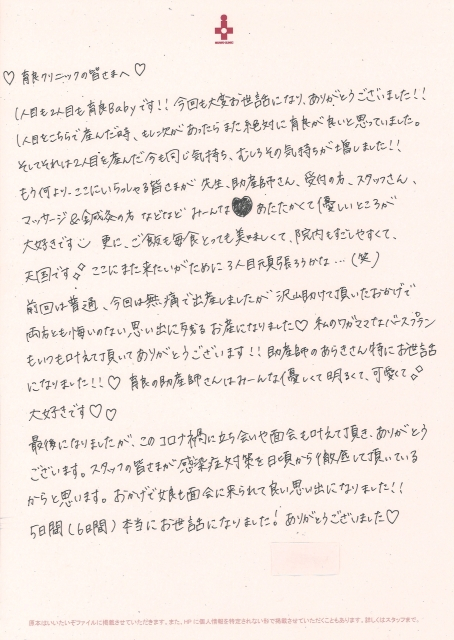 ♡ 育良クリニックの皆さまへ ♡
1人目も2人目も育良Babyです!! 今回も大変お世話になり、ありがとうございました!!
1人目をこちらで産んだ時、もし次があったらまた絶対に育良が良いと思っていました。
そしてそれは2人目を産んだ今も同じ気持ち、むしろその気持ちが増しました!!
もう何より、ここにいらっしゃる皆さまが 先生、助産師さん、受付の方、スタッフさん、
マッサージ&鍼灸の方 などなど みーんな♥あたたかくて優しいところが
大好きです 更に、ご飯も毎食とっても美味しくて、院内もすごしやすくて、
天国です ここにまた来たいがために3人目頑張ろうかな…(笑)
前回は普通、今回は無痛で出産しましたが 沢山助けて頂いたおかげで
両方とも悔いのない思い出に残るお産になりました♡ 私のワガママなバースプラン
もいつも叶えて頂いてありがとうございます!! 助産師のあらきさん特にお世話
になりました!!♡ 育良の助産師さんはみーんな優しくて明るくて、可愛くて
大好きです♡♡
最後になりましたが、このコロナ禍に立ち会いや面会も叶えて頂き、ありがとう
ございます。スタッフの皆さまが感染症対策を日頃から徹底して頂いている
からと思います。おかげで娘も面会に来られて良い思い出になりました!!
5日間(6日間)本当にお世話になりました! ありがとうございました♡
原本はいいたいぞファイルに掲載させていただきます。また、HPに個人情報を特定されない形で掲載させていただくこともあります。詳しくはスタッフまで。